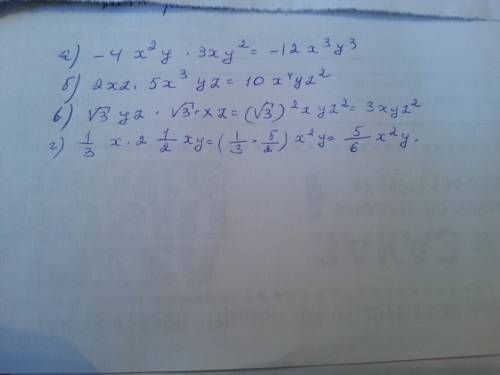 а) -4 x²y · 3xy² = -12 x³y³
б) 2xz · 5x³ yz = 10 x⁴yz²
в) √3 yz · √3 · xz = (√3)² x yz² = 3xyz²
г) 1/3 x · 2 1/2 xy = (1/3 · 5/2) x²y = 5/6 x²y.
ЗАКАЗ